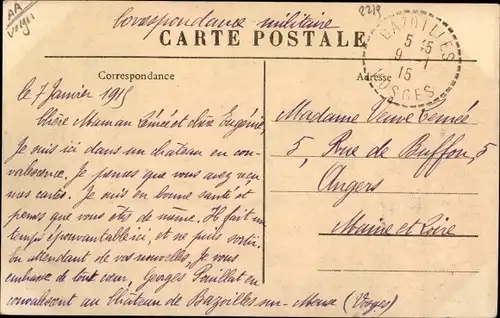 AA
Vosges
Correspondance militaire
2219
CARTE POSTALE
BAZOILLES
5 15
9 - 1
15
VOSGES
Correspondance
Adresse
le 7 Janvier 1915
Chère Maman et chère Eugénie
Je suis ici dans un château en con-
valescence, je penses que vous avez reçu
mes cartes. Je suis en bonne santé et
penses que vous êtes de même. Il fait un
temps épouvantable ici, et ne puis sortir.
En attendant de vos nouvelles, Je vous
embrasse de tout cœur, Georges Pouillat en
convalescent au Château de Bazoilles sur-Meuse (Vosges)
Madame Veuve
5, Rue de Buffon, 5
Angers
Maine et Loire